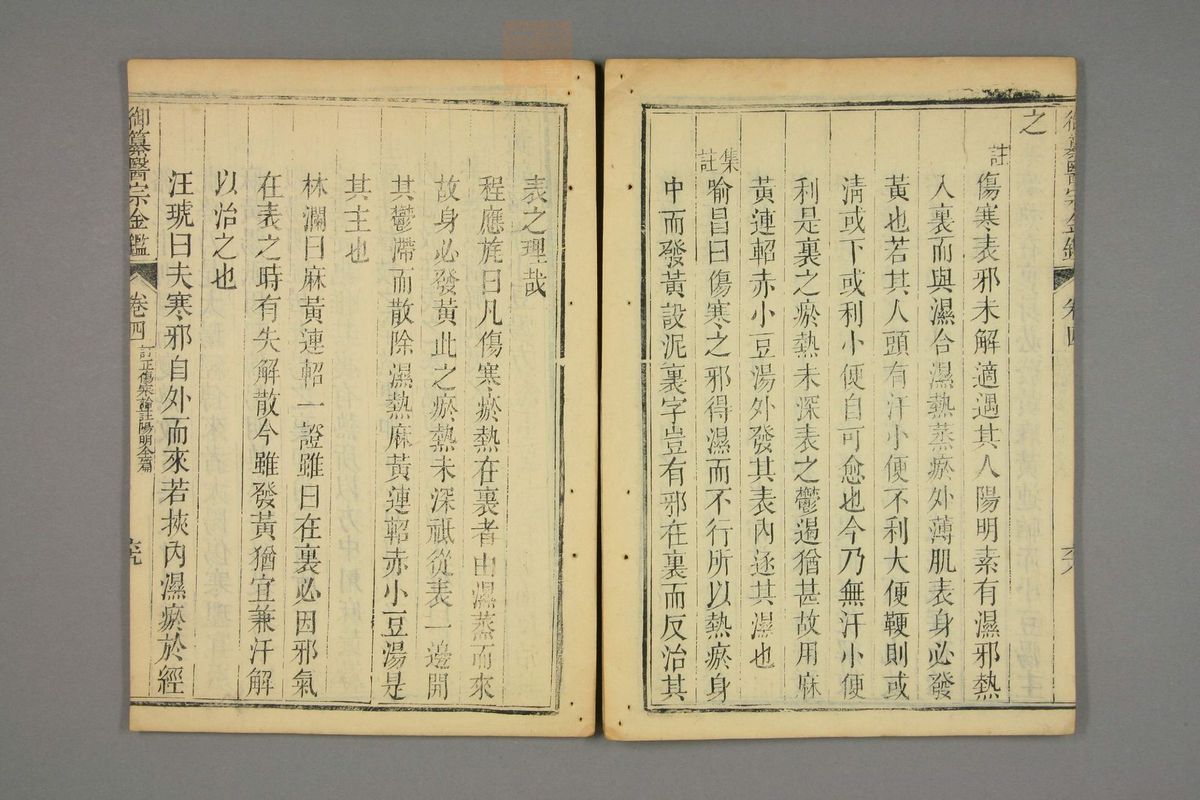 御纂醫宗金鑑 卷四 六
之
註
傷寒表邪未解適遇其人陽明素有濕邪熱
入裏而與濕合濕熱蒸瘀外薄肌表身必發
黃也若其人頭有汗小便不利大便鞕則或
淸或下或利小便自可愈也今乃無汗小便
利是裏之瘀熱未深表之鬱遏猶甚故用麻
黃連軺赤小豆湯外發其表內逐其濕也
集註
喻昌曰傷寒之邪得濕而不行所以熱瘀身
中而發黃設泥裏字豈有邪在裏而反治其
表之理哉
程應旄曰凡傷寒瘀熱在裏者由濕蒸而來
故身必發黃此之瘀熱未深祗從表一邊開
其鬱滯而散除濕熱麻黃連軺赤小豆湯是
其主也
林瀾曰麻黃連軺一證雖曰在裏必因邪氣
在表之時有失解散今雖發黃猶宜兼汗解
以治之也
汪琥曰夫寒邪自外而來若挾內濕瘀於經
御纂醫宗金鑑 卷四 訂正傷寒論註陽明全篇